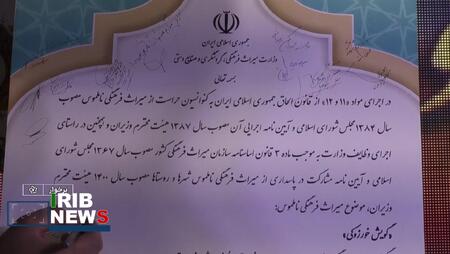 جمهوری اسلامی ایران
وزارت میراث فرهنگی، گردشگری و صنایع دستی
بسمه تعالی
در اجرای مواد «۱۱ و ۱۲» از قانون الحاق جمهوری اسلامی ایران به کنوانسیون حراست از میراث فرهنگی ناملموس مصوب
سال ۱۳۸۴ مجلس شورای اسلامی و آیین نامه اجرایی آن مصوب سال ۱۳۸۷ هیئت محترم وزیران و همچنین در راستای
اجرای وظایف وزارت به موجب ماده ۳ قانون اساسنامه سازمان میراث فرهنگی کشور مصوب سال ۱۳۶۷ مجلس شورای
اسلامی و آیین نامه مشارکت در پاسداری از میراث فرهنگی ناملموس شهرها و روستاها مصوب سال ۱۴۰۰ هیئت محترم
وزیران، موضوع میراث فرهنگی ناملموس:
«گویش خورزوقی»
برخوار
IRIB
NEWS